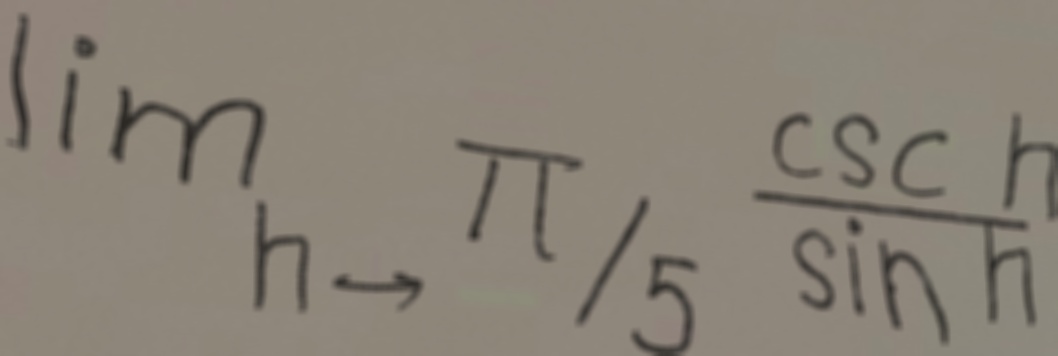 lim h→π/5 csc h / sin h